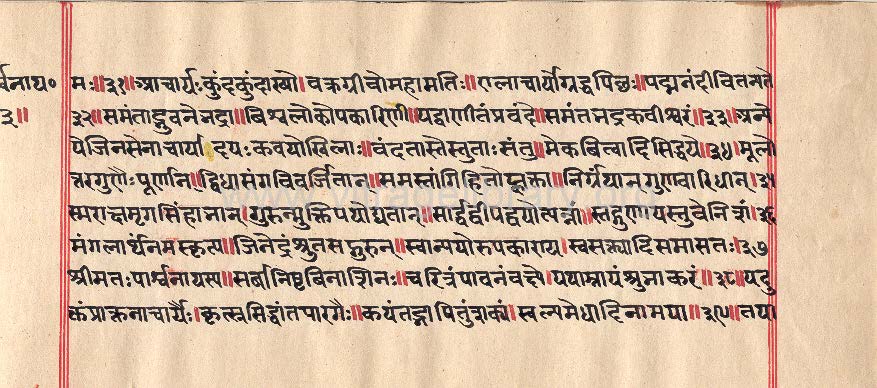 र्श्वनाथ० मः॥३१॥आचार्यःकुंदकुंदाख्यो।वक्रग्रीवोमहामतिः॥एलाचार्योगृद्धपिच्छः॥पद्मनंदीवितन्यते
३॥ ॥३२॥समंताद्भुवनेभद्रा॥विश्वलोकोपकारिणी॥यद्वाणीतंप्रवंदे॥समंतभद्रकवीश्वरं॥३३॥अन्ये
येजिनसेनाचार्यादयःकवयोखिलाः॥वंदतास्तेस्तुताःसंतु॥मेकवित्वादिसिद्धये॥३४॥मूलो
त्तरगुणैःपूर्णान्॥द्विधासंगविवर्जितान्॥समस्तांगिहितोद्युक्ता॥निर्ग्रंथान्गुणवारिधान्॥३५
स्मराक्षमृगसिंहानान्।गुरून्मुक्तिपथोद्यतान्॥सार्द्धद्वीपद्वयोत्पन्नां॥स्तद्गुणायस्तुवेनिशं॥३६
मंगलार्थंनमस्कृत्य॥जिनेंद्रंश्रुतसद्गुरून्॥स्वान्ययोरुपकाराय।स्वसक्त्यादिसमासतः॥३७
श्रीमतःपार्श्वनाथस्य॥सर्वानिष्टविनाशिनः॥चरित्रंपावनंवक्ष्ये॥यथाम्नायंश्रुनाकरं॥३८॥यदु
क्तंप्राक्तनाचार्यैः।कृत्स्नसिद्धांतपारगैः॥कथंतद्भाषितुंशक्यं।स्वल्पमेधादिनामया॥३९॥तथा
www.jainelibrary.org